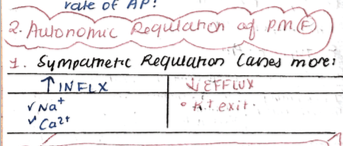 rate of AP!
2. Autonomic Regulation of P.M.(F)
1. Sympathetic Regulation Causes more:
↑ INFLX ↓ EFFLUX
✓ Na⁺ • K⁺ exit.
✓ Ca²⁺